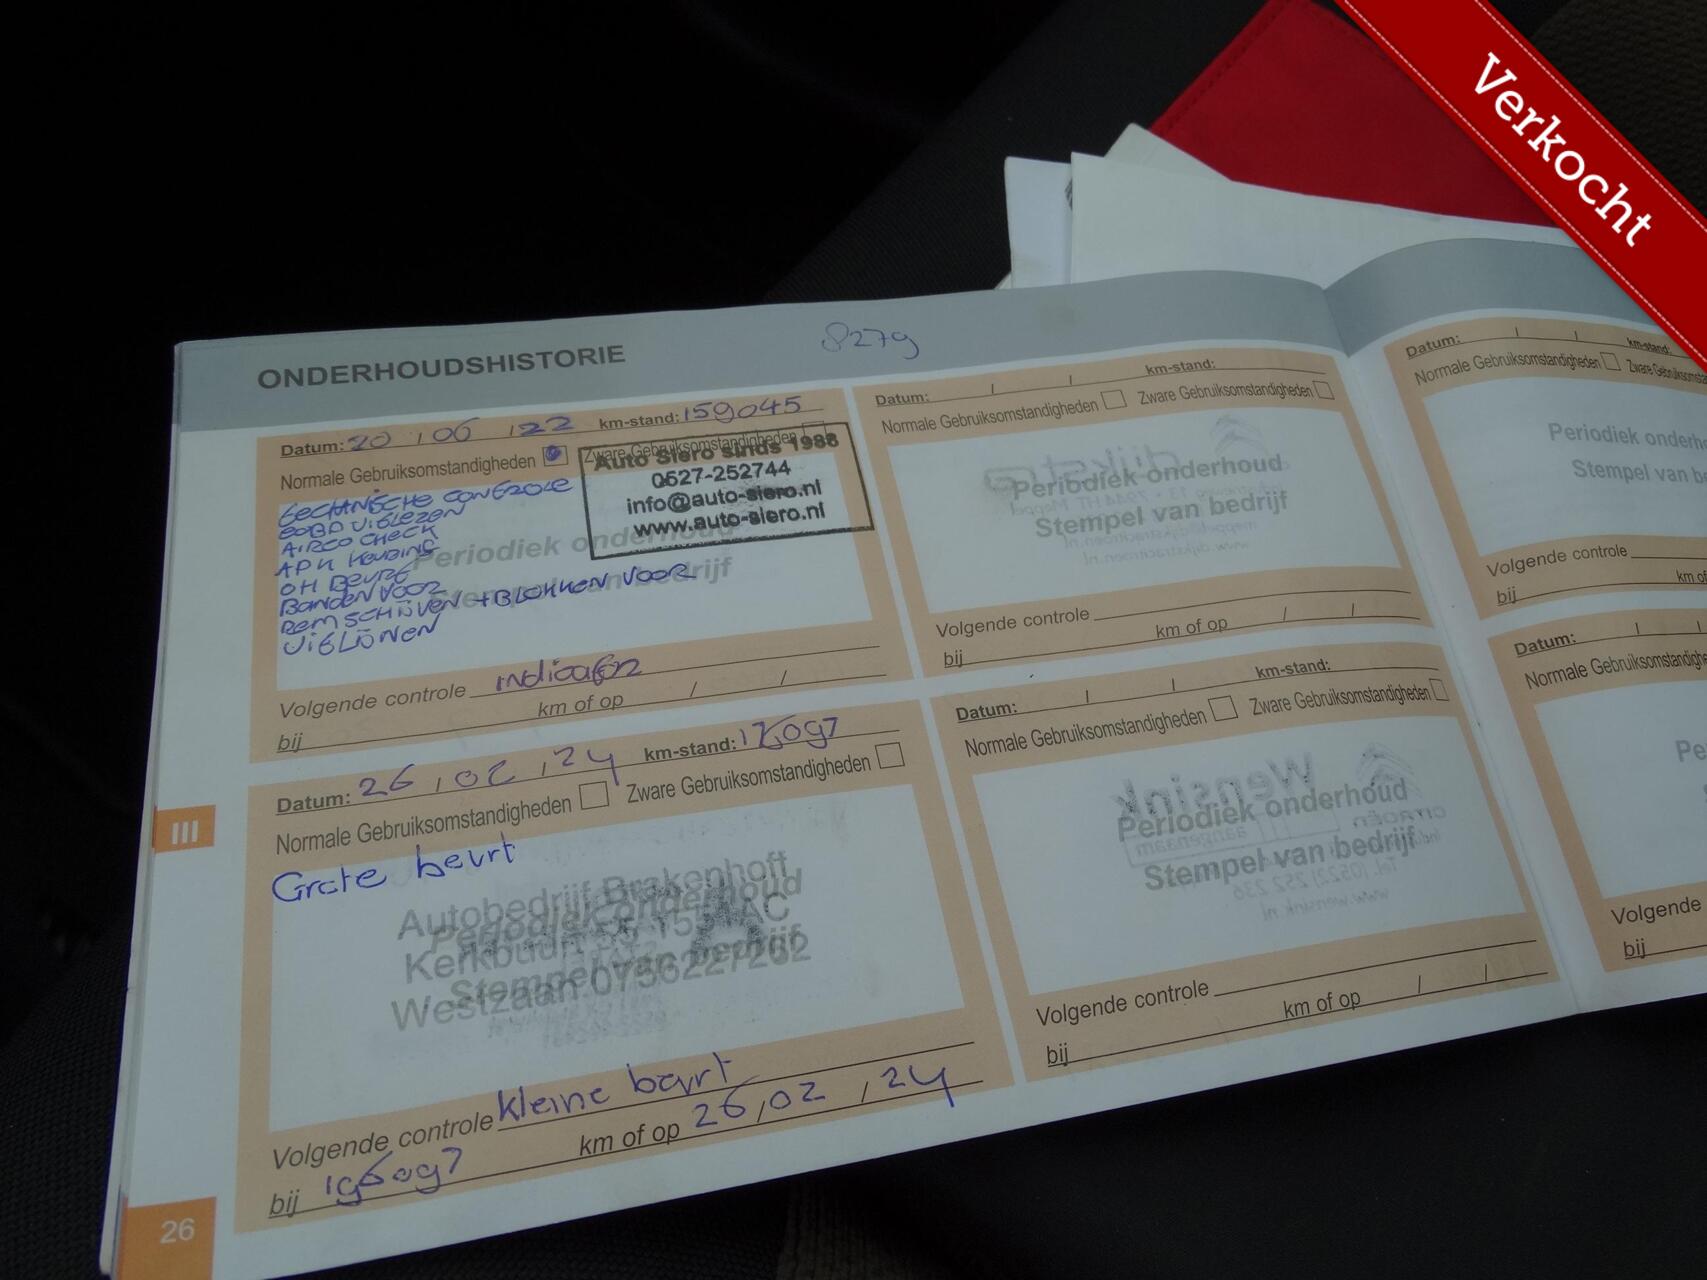 Verkocht
ONDERHOUDSHISTORIE
8279
Datum: 20 / 06 / 22 km-stand: 159045
Normale Gebruiksomstandigheden Zware Gebruiksomstandigheden
Auto Siero sinds 1988
0527-252744
info@auto-siero.nl
www.auto-siero.nl
EOBD UITLEZEN
AIRCO CHECK
APK KEURING
OH BEURT
BANDEN VOOR
REMSCHIJVEN + BLOKKEN VOOR
UITLIJNEN
Periodiek onderhoud
Stempel van bedrijf
Volgende controle
bij km of op / /
Datum: 26 / 02 / 24 km-stand:
Normale Gebruiksomstandigheden Zware Gebruiksomstandigheden
Grote beurt
Autobedrijf Brakenhoff
Periodiek onderhoud
Stempel van bedrijf
Westzaan 0756227262
Volgende controle kleine beurt
bij 196097 km of op 26 / 02 / 24
Datum: / / km-stand:
Normale Gebruiksomstandigheden Zware Gebruiksomstandigheden
Periodiek onderhoud
Stempel van bedrijf
Volgende controle
bij km of op / /
Datum: / / km-stand:
Normale Gebruiksomstandigheden Zware Gebruiksomstandigheden
Wensink
Periodiek onderhoud
Stempel van bedrijf
www.wensink.nl
Volgende controle
bij km of op / /
Datum: / / km-stand:
Normale Gebruiksomstandigheden Zware
Periodiek
Stempel van
Volgende controle
bij km of
Datum: / /
Normale
Volgende
bij
III
26